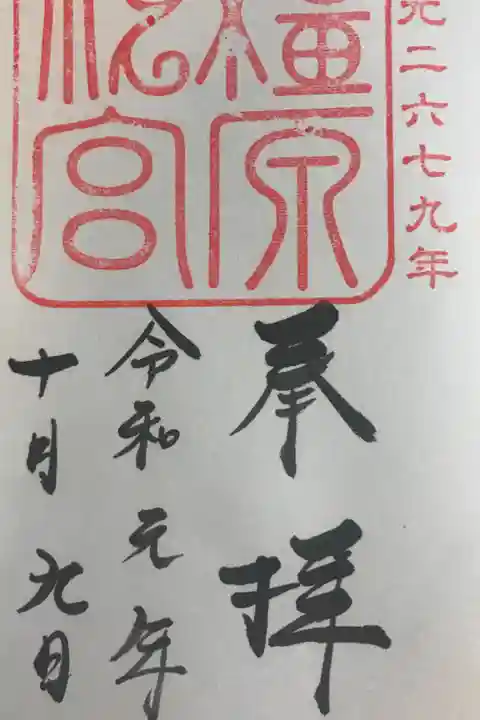 元二六七九年
橿原
神宮
奉拝
令和元年
十月九日